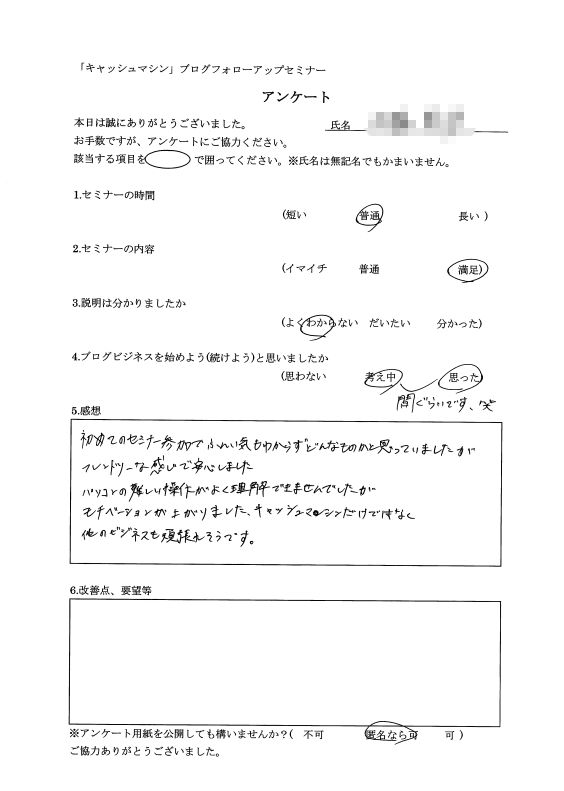 「キャッシュマシン」ブログフォローアップセミナー
アンケート
本日は誠にありがとうございました。
氏名
お手数ですが、アンケートにご協力ください。
該当する項目を で囲ってください。※氏名は無記名でもかまいません。
1.セミナーの時間
(短い 普通 長い )
2.セミナーの内容
(イマイチ 普通 満足)
3.説明は分かりましたか
(よくわからない だいたい 分かった)
4.ブログビジネスを始めよう(続けよう)と思いましたか
(思わない 考え中 思った)
間ぐらいです、笑
5.感想
初めてのセミナー参加でふんい気もわからずどんなものかと思っていましたが
フレンドリーな感じで安心しました
パソコンの難しい操作がよく理解できませんでしたが
モチベーションが上がりました、キャッシュマシンだけではなく
他のビジネスも頑張れそうです。
6.改善点、要望等
※アンケート用紙を公開しても構いませんか?( 不可 匿名なら可 可 )
ご協力ありがとうございました。